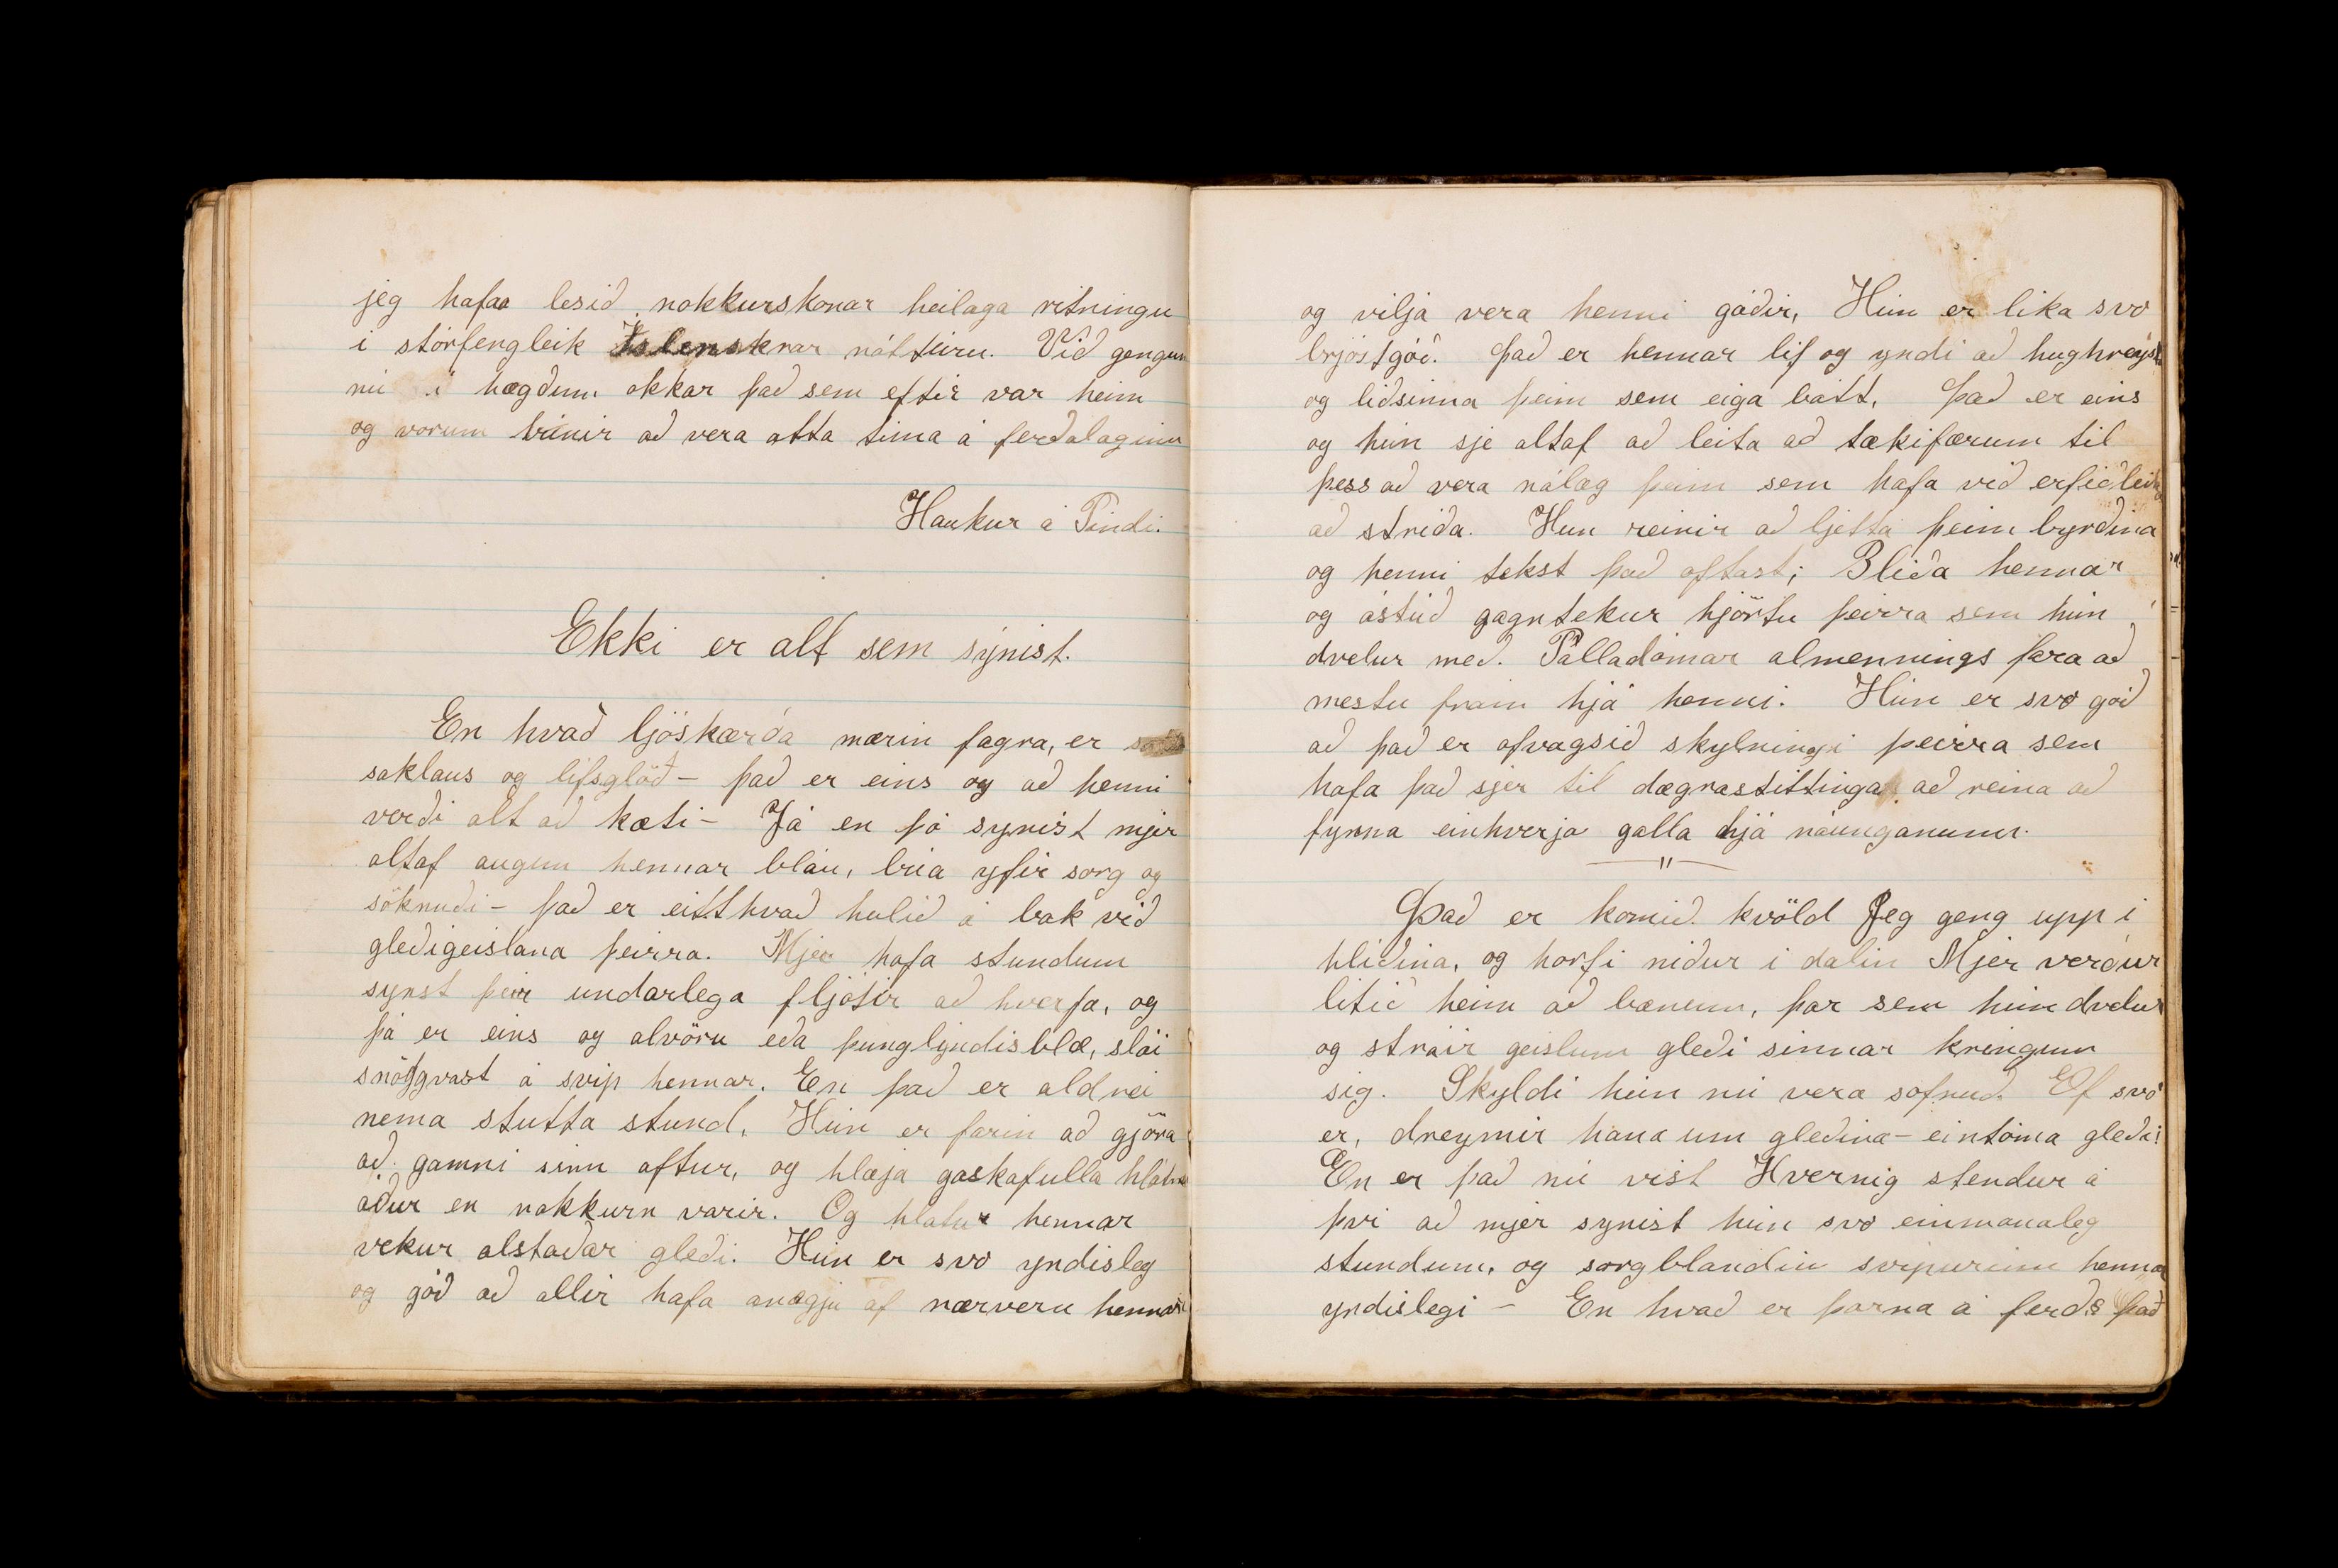 jeg hafaa lesið nokkurskonar heilaga ritningu
i stórfengleik Islenskrar náttúru. Við gengum
nú i hægðum okkar það sem eftir var heim
og vorum búnir að vera átta tima á ferðalaginu
Haukur á Tindi.
Ekki er alt sem sýnist.
En hvað ljóskærða mærin fagra, er
saklaus og lifsglöð – það er eins og að henni
verði alt að kæti – Já en þó synist mjer
altaf augun hennar bláu, búa yfir sorg og
söknuði – það er eitthvað hulið á bak við
gleðigeislana þeirra. Mjer hafa stundum
synst þeir undarlega fljótir að hverfa, og
þá er eins og alvöru eða þunglyndisblæ, slái
snöggvast á svip hennar. En það er aldrei
nema stutta stund. Hún er farin að gjöra
að gamni sinu aftur, og hlæja gáskafulla hlátra
áður en nokkurn varir. Og hlatur hennar
vekur alstaðar gleði. Hún er svo yndisleg
og góð að allir hafa anægju af nærveru hennar
og vilja vera henni góðir, Hún er lika svo
brjóstgóð. Það er hennar lif og yndi að hughreysta
og liðsinna þeim sem eiga bátt. Það er eins
og hún sje altaf að leita að tækifærum til
þess að vera nálæg þeim sem hafa við erfiðleika
að striða. Hun reinir að ljetta þeim byrðina
og henni tekst það oftast; Bliða hennar
og ástúð gagntekur hjörtu þeirra sem hún
dvelur með. Palladómar almennings fara að
mestu fram hjá henni. Hún er svo góð
að það er ofvagsið skylningi þeirra sem
hafa það sjer til dægrastittingar að reina að
fynna einhverja galla hjá náunganum.
Það er komið kvöld Jeg geng upp i
hliðina, og horfi niður i dalin Mjer verður
litið heim að bænum, þar sem hún dvelur
og stráir geislum gleði sinnar kringum
sig. Skyldi hún nú vera sofnuð. Ef svo
er, dreymir hana um gleðina – eintóma gleði!
En er það nú vist Hvernig stendur á
þvi að mjer synist hún svo einmanaleg
stundum, og sorgblandin svipurinn hennar
yndislegi – En hvað er þarna á ferð það